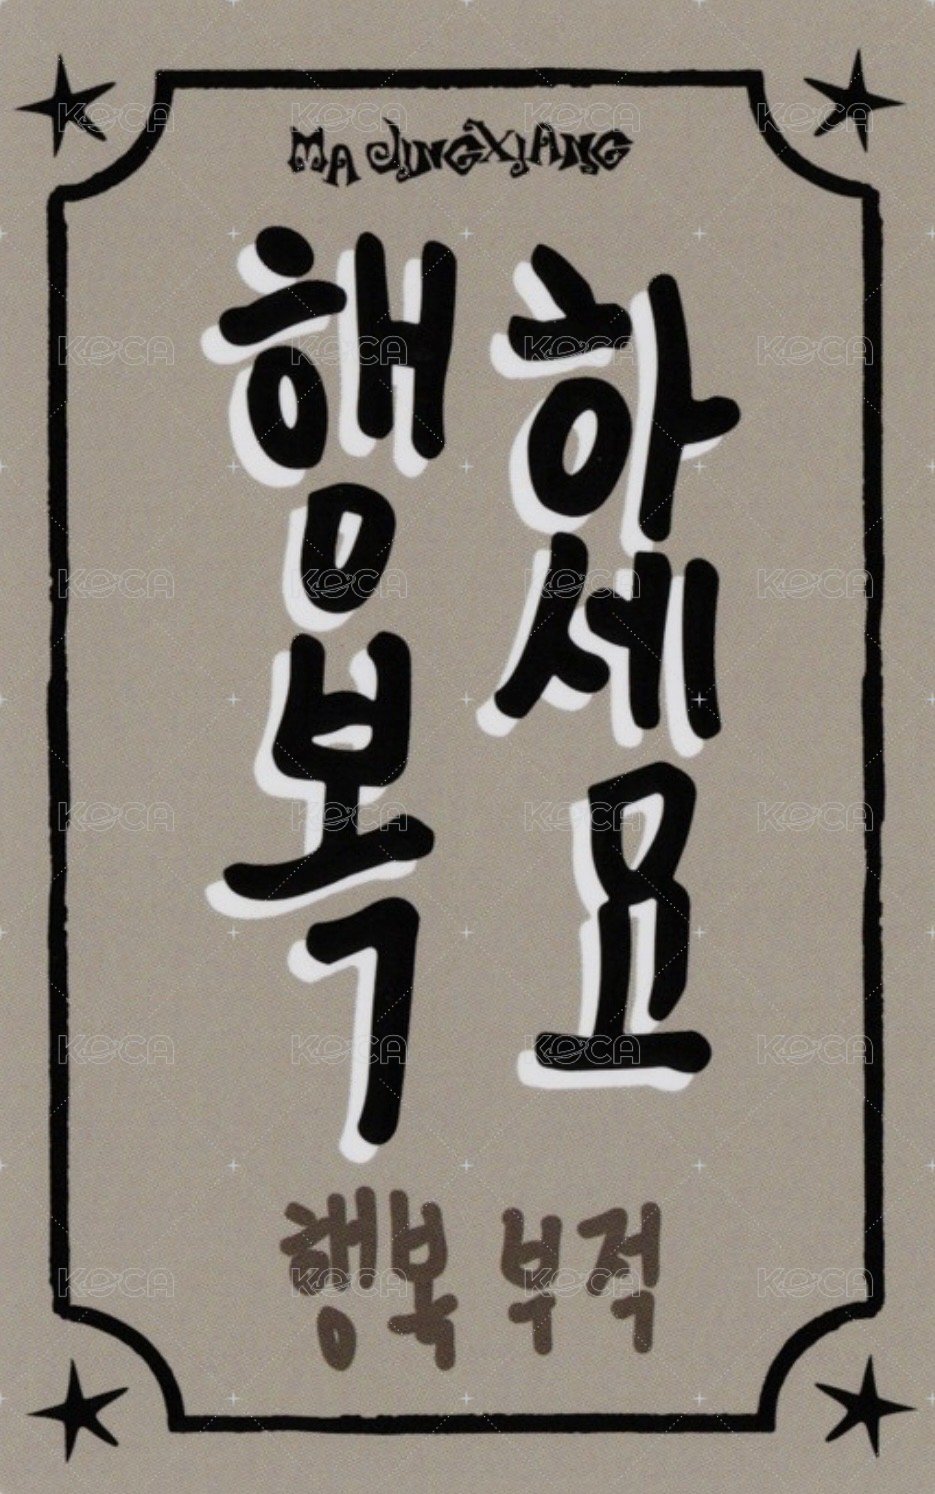 MA JINGXIANG
행복
하세요
행복 부적
KOCA